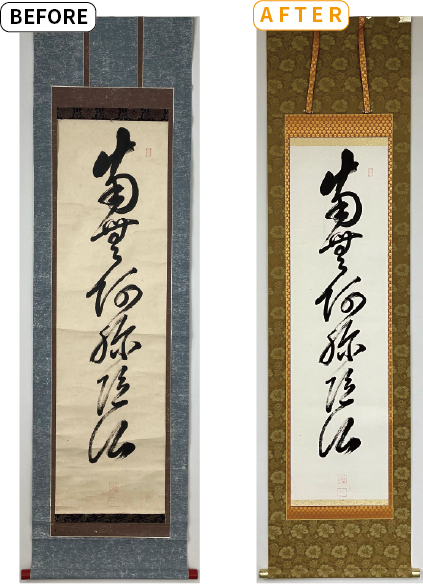 BEFORE
AFTER
南無阿弥陀仏
南無阿弥陀仏